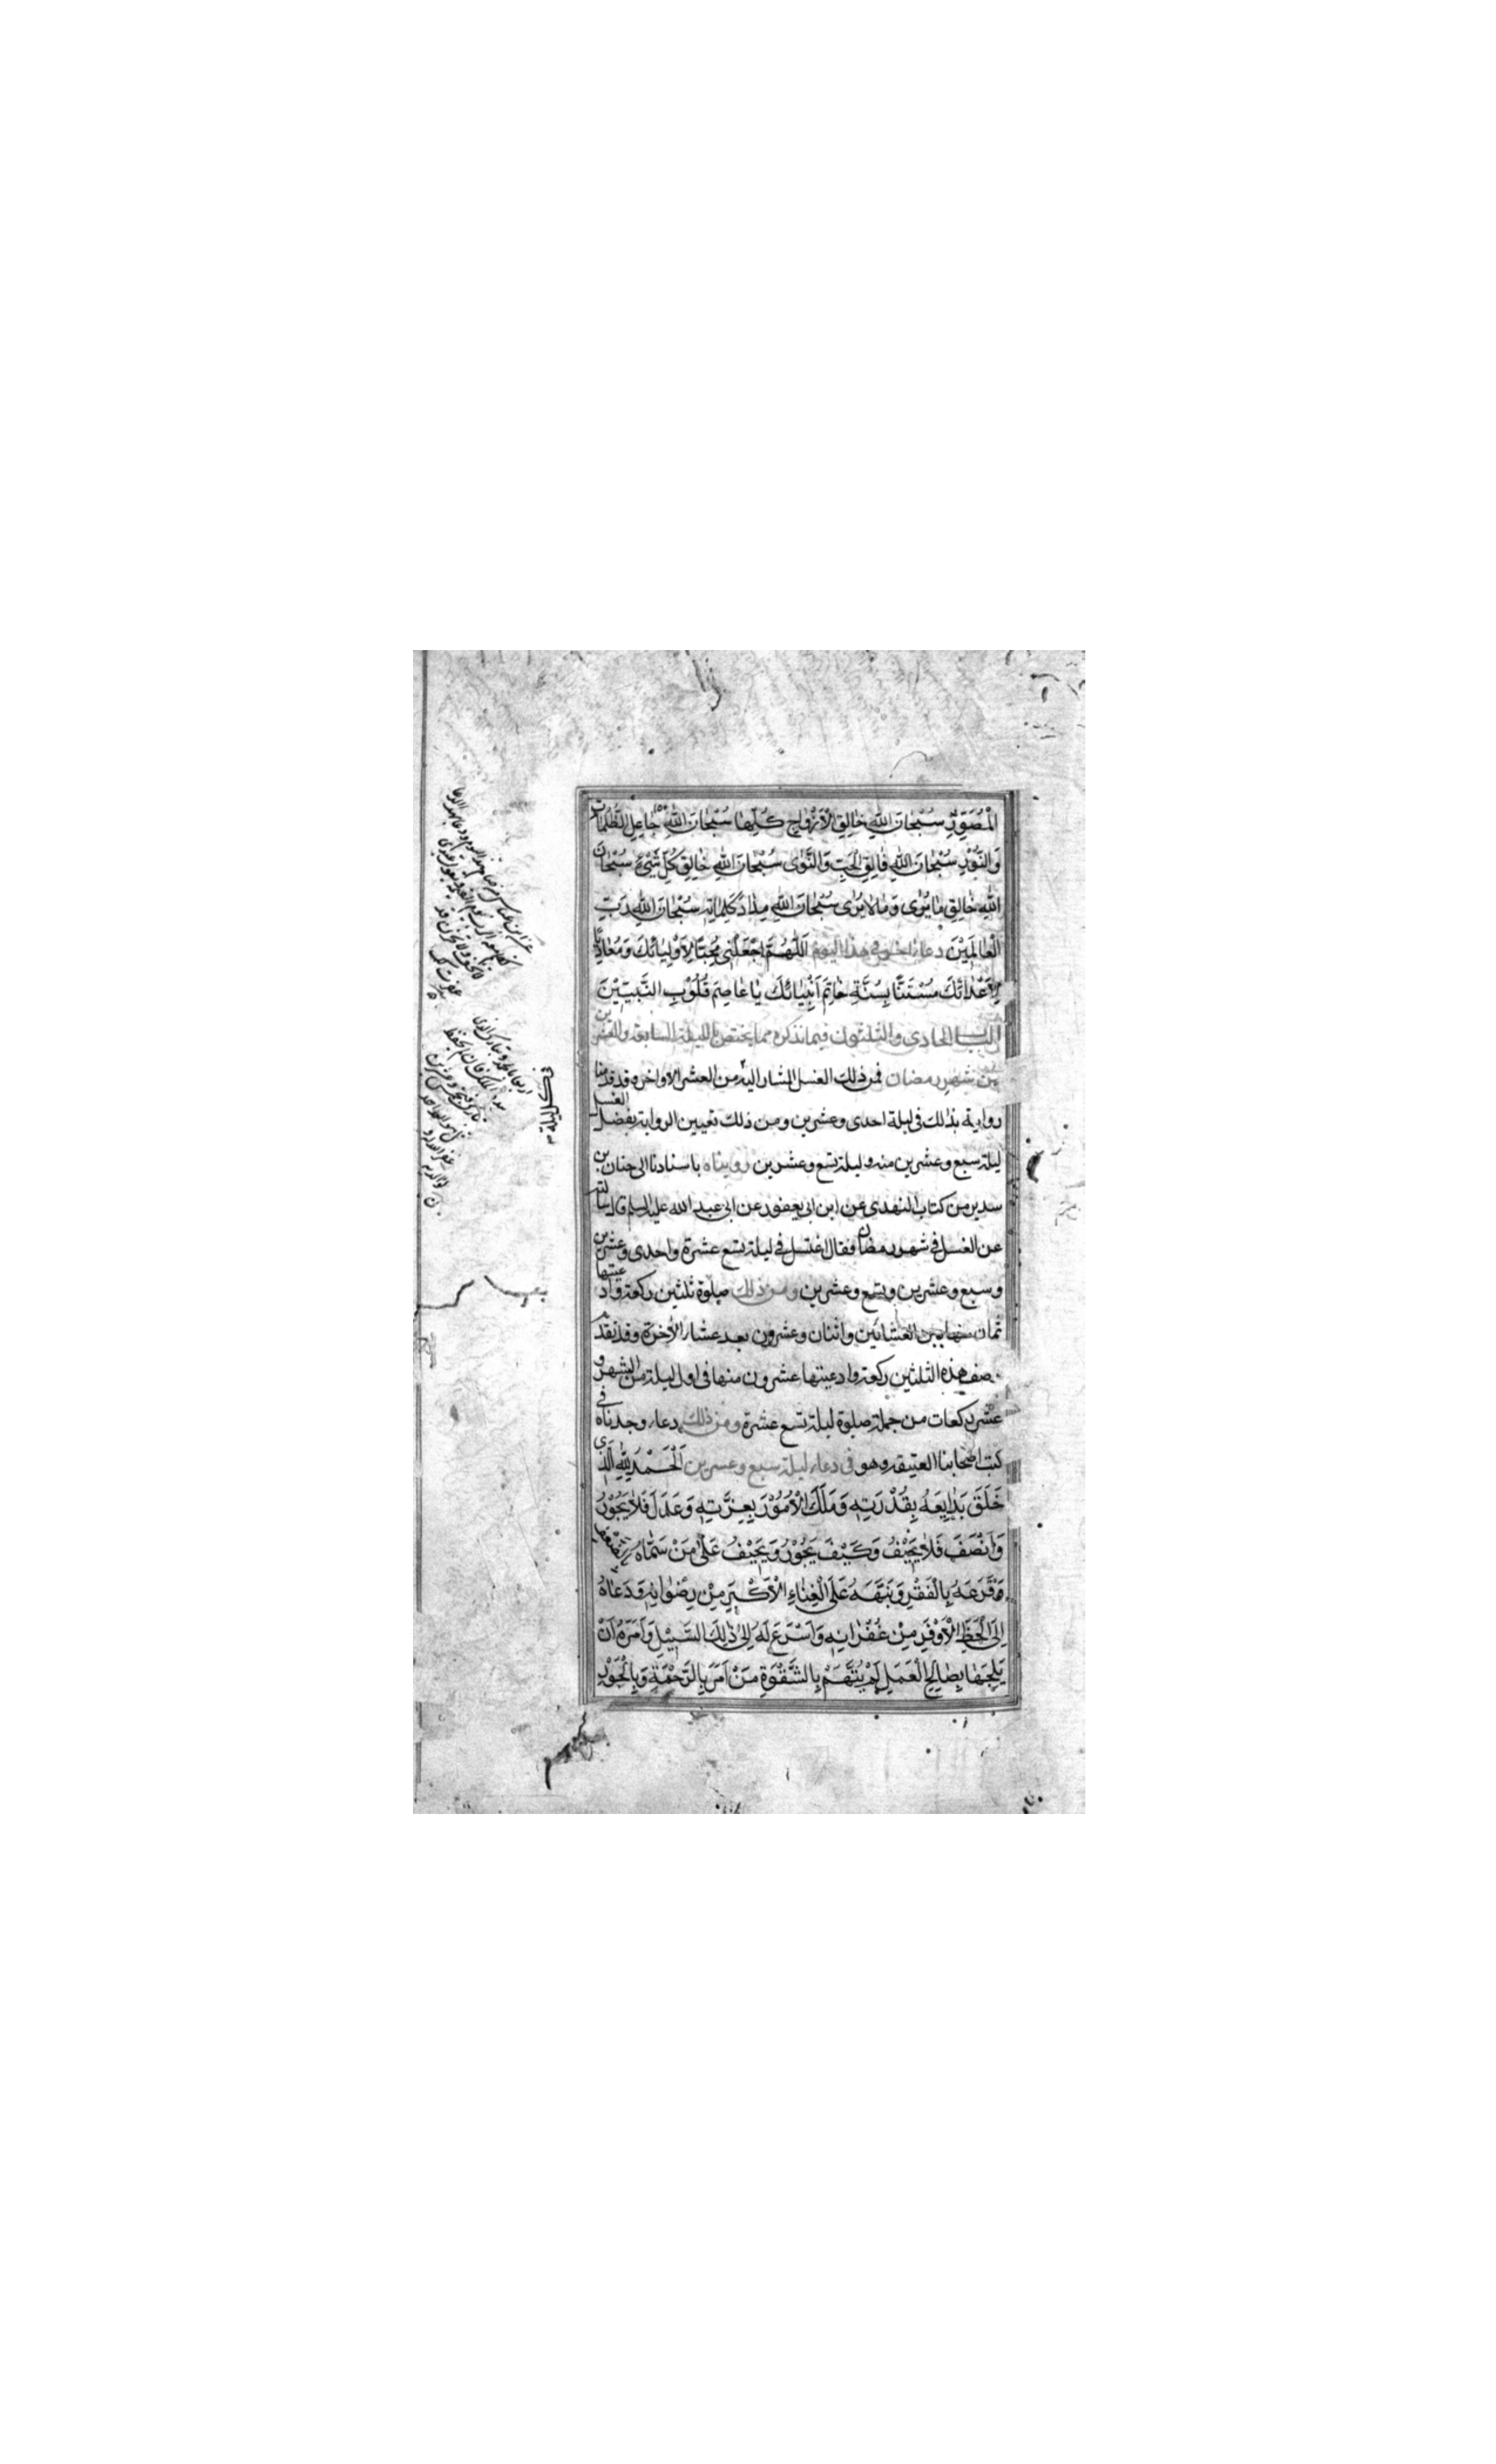 الْمُصَوِّرِ سُبْحَانَ اللّٰهِ خَالِقِ الْاَزْوَاجِ كُلِّهَا سُبْحَانَ اللّٰهِ جَاعِلِ الظُّلُمَاتِ
وَالنُّوْرِ سُبْحَانَ اللّٰهِ فَالِقِ الْحَبِّ وَالنَّوٰى سُبْحَانَ اللّٰهِ خَالِقِ كُلِّ شَيْئٍ سُبْحَانَ
اللّٰهِ خَالِقِ مَا يُرٰى وَمَا لَا يُرٰى سُبْحَانَ اللّٰهِ مِدَادَ كَلِمَاتِهِ سُبْحَانَ اللّٰهِ رَبِّ
الْعَالَمِيْنَ دعاء اخر فى هذا اليوم اَللّٰهُمَّ اجْعَلْنِى مُحِبًّا لِاَوْلِيَائِكَ وَمُعَادِيًا
لِاَعْدَائِكَ مُسْتَنًّا بِسُنَّةِ خَاتِمِ اَنْبِيَائِكَ يَا عَاصِمَ قُلُوْبِ النَّبِيّيْنَ
الباب الحادى والثلثون فيما نذكره مما يختص بالليلة السابعة والعشر
ين من شهر رمضان فمن ذلك الغسل المشار اليه من العشر الاواخر وقد قدمنا
رواية بذلك فى ليلة احدى وعشرين ومن ذلك تعيين الرواية بفضل الغسل
ليلة سبع وعشرين منه وليلة تسع وعشرين رويناه باسنادنا الى حنان بن
سدير من كتاب النهدى عن ابن ابى يعفور عن ابى عبد الله عليه السلم قال سالته
عن الغسل فى شهر رمضان فقال اغتسل فى ليلة تسع عشرة واحدى وعشرين
وسبع وعشرين وتسع وعشرين ومن ذلك صلوة ثلثين ركعة وادعيتها
ثمان منها بين العشائين واثنان وعشرون بعد عشاء الاخرة وقد تقدم
وصف هذه الثلثين ركعة وادعيتها عشرون منها فى اول ليلة من الشهر و
عشر ركعات من جملة صلوة ليلة تسع عشرة ومن ذلك دعاء وجدناه فى
كتب اصحابنا العتيقة وهو فى دعاء ليلة سبع وعشرين اَلْحَمْدُ لِلّٰهِ الَّذِى
خَلَقَ بَدَايِعَهُ بِقُدْرَتِهِ وَمَلَكَ الْاُمُوْرَ بِعِزَّتِهِ وَعَدَلَ فَلَا يَجُوْرُ
وَاَنْصَفَ فَلَا يَحِيْفُ وَكَيْفَ يَجُوْرُ وَيَحِيْفُ عَلٰى مَنْ سَمَّاهُ بِالضَّعْفِ
وَقَرَعَهُ بِالْفَقْرِ وَنَبَّهَهُ عَلَى الْغِنَاءِ الْاَكْبَرِ مِنْ رِضْوَانِهِ وَدَعَاهُ
اِلَى الْحَظِّ الْاَوْفَرِ مِنْ غُفْرَانِهِ وَاَشْرَعَ لَهُ اِلٰى ذٰلِكَ السَّبِيْلَ وَاَمَرَهُ اَنْ
يَلِجَهَا بِصَالِحِ الْعَمَلِ لَمْ يُتَّهَمْ بِالشَّقْوَةِ مَنْ اَمَرَ بِالرَّحْمَةِ وَبِالْجَوْرِ